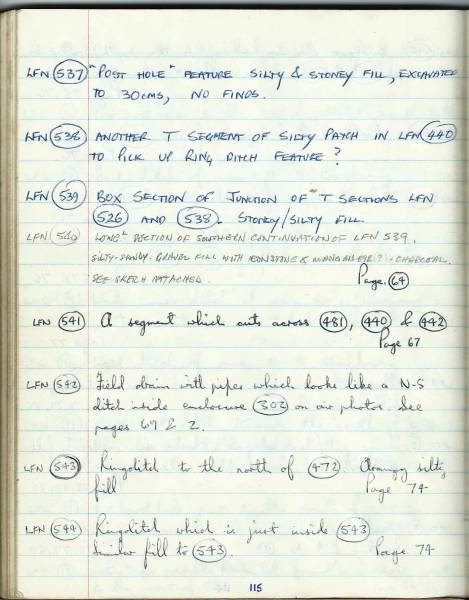 LFN 537 "POST HOLE" FEATURE SILTY & STONEY FILL, EXCAVATED
TO 30CMS, NO FINDS.
LFN 538 ANOTHER T SEGMENT OF SILTY PATCH IN LFN 440
TO PICK UP RING DITCH FEATURE?
LFN 539 BOX SECTION OF JUNCTION OF T SECTIONS LFN
526 AND 538. STONEY/SILTY FILL.
LFN 540 LONG SECTION OF SOUTHERN CONTINUATION OF LFN 539.
SILTY-SANDY-GRAVEL FILL WITH IRONSTONE & MANGANESE? + CHARCOAL.
SEE SKETCH ATTACHED. Page 64
LFN 541 A segment which cuts across 481, 440 & 442
Page 67
LFN 542 Field drain with pipes which looks like a N-S
ditch inside enclosure 302 on air photos. See
pages 69 & 2.
LFN 543 Ringditch to the north of 472. Orangy silty
fill Page 74
LFN 544 Ringditch which is just inside 543
Similar fill to 543. Page 74
115